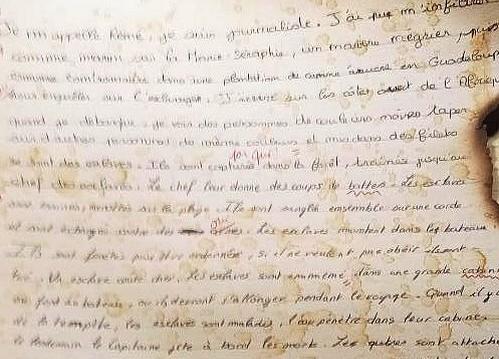 Je m'appelle René, je suis journaliste. J'ai pu m'infiltrer
comme marin sur la Marie Séraphie, un navire négrier, puis
comme contremaître dans une plantation de canne à sucre en Guadeloupe
pour enquêter sur l'esclavage. J'arrive sur les côtes ouest de l'Afrique
quand je débarque, je vois des personnes de couleurs noires taper
sur d'autres personnes de même couleurs et
Ce sont des esclaves. Ils sont capturés dans la forêt, traînés jusqu'au
par qui
chef des esclaves. Le chef leur donne des coups de battes. Les esclaves
sont ensuite sur la plage. Ils sont ensemble sur une corde
et sont échangés contre des armes. Les esclaves montent dans les bateaux
Ils sont forcés pour être si ils ne veulent pas obéir ils sont
tué. Un esclave coûte cher. Les esclaves sont emmené dans une grande cabine
au fond du bateau, où ils devront s'allonger pendant le voyage. Quand il y a
de la tempête, les esclaves sont malades, l'eau pénètre dans leur cabine.
le lendemain le capitaine jète à bord les morts. Les autres sont attachés